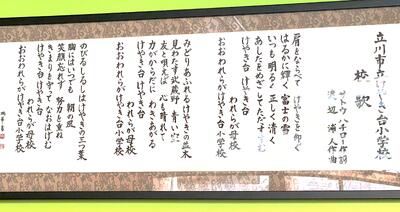 立川市立けやき台小学校
校歌
サトウハチロー作詞
渡辺浦人作曲
肩をならべて けやきを仰ぐ
はるかに輝く 富士の雪
いつも明るく 正しく清く
あしたをめざして ただ
けやき台 けやき台
われらが母校
おおわれらが けやき台小学校
みどりあふれる けやきの並木
見わたす武蔵野 青い
友と唄えば 心も晴れて
力がからだに わきあがる
けやき台 けやき台
われらが母校
おおわれらが けやき台小学校
のびるしるしは けやきの三つ葉
胸にはいつも 朝の
笑顔忘れず 努力を重ね
きまりを守って なおはげむ
けやき台 けやき台
われらが母校
おおわれらが けやき台小学校